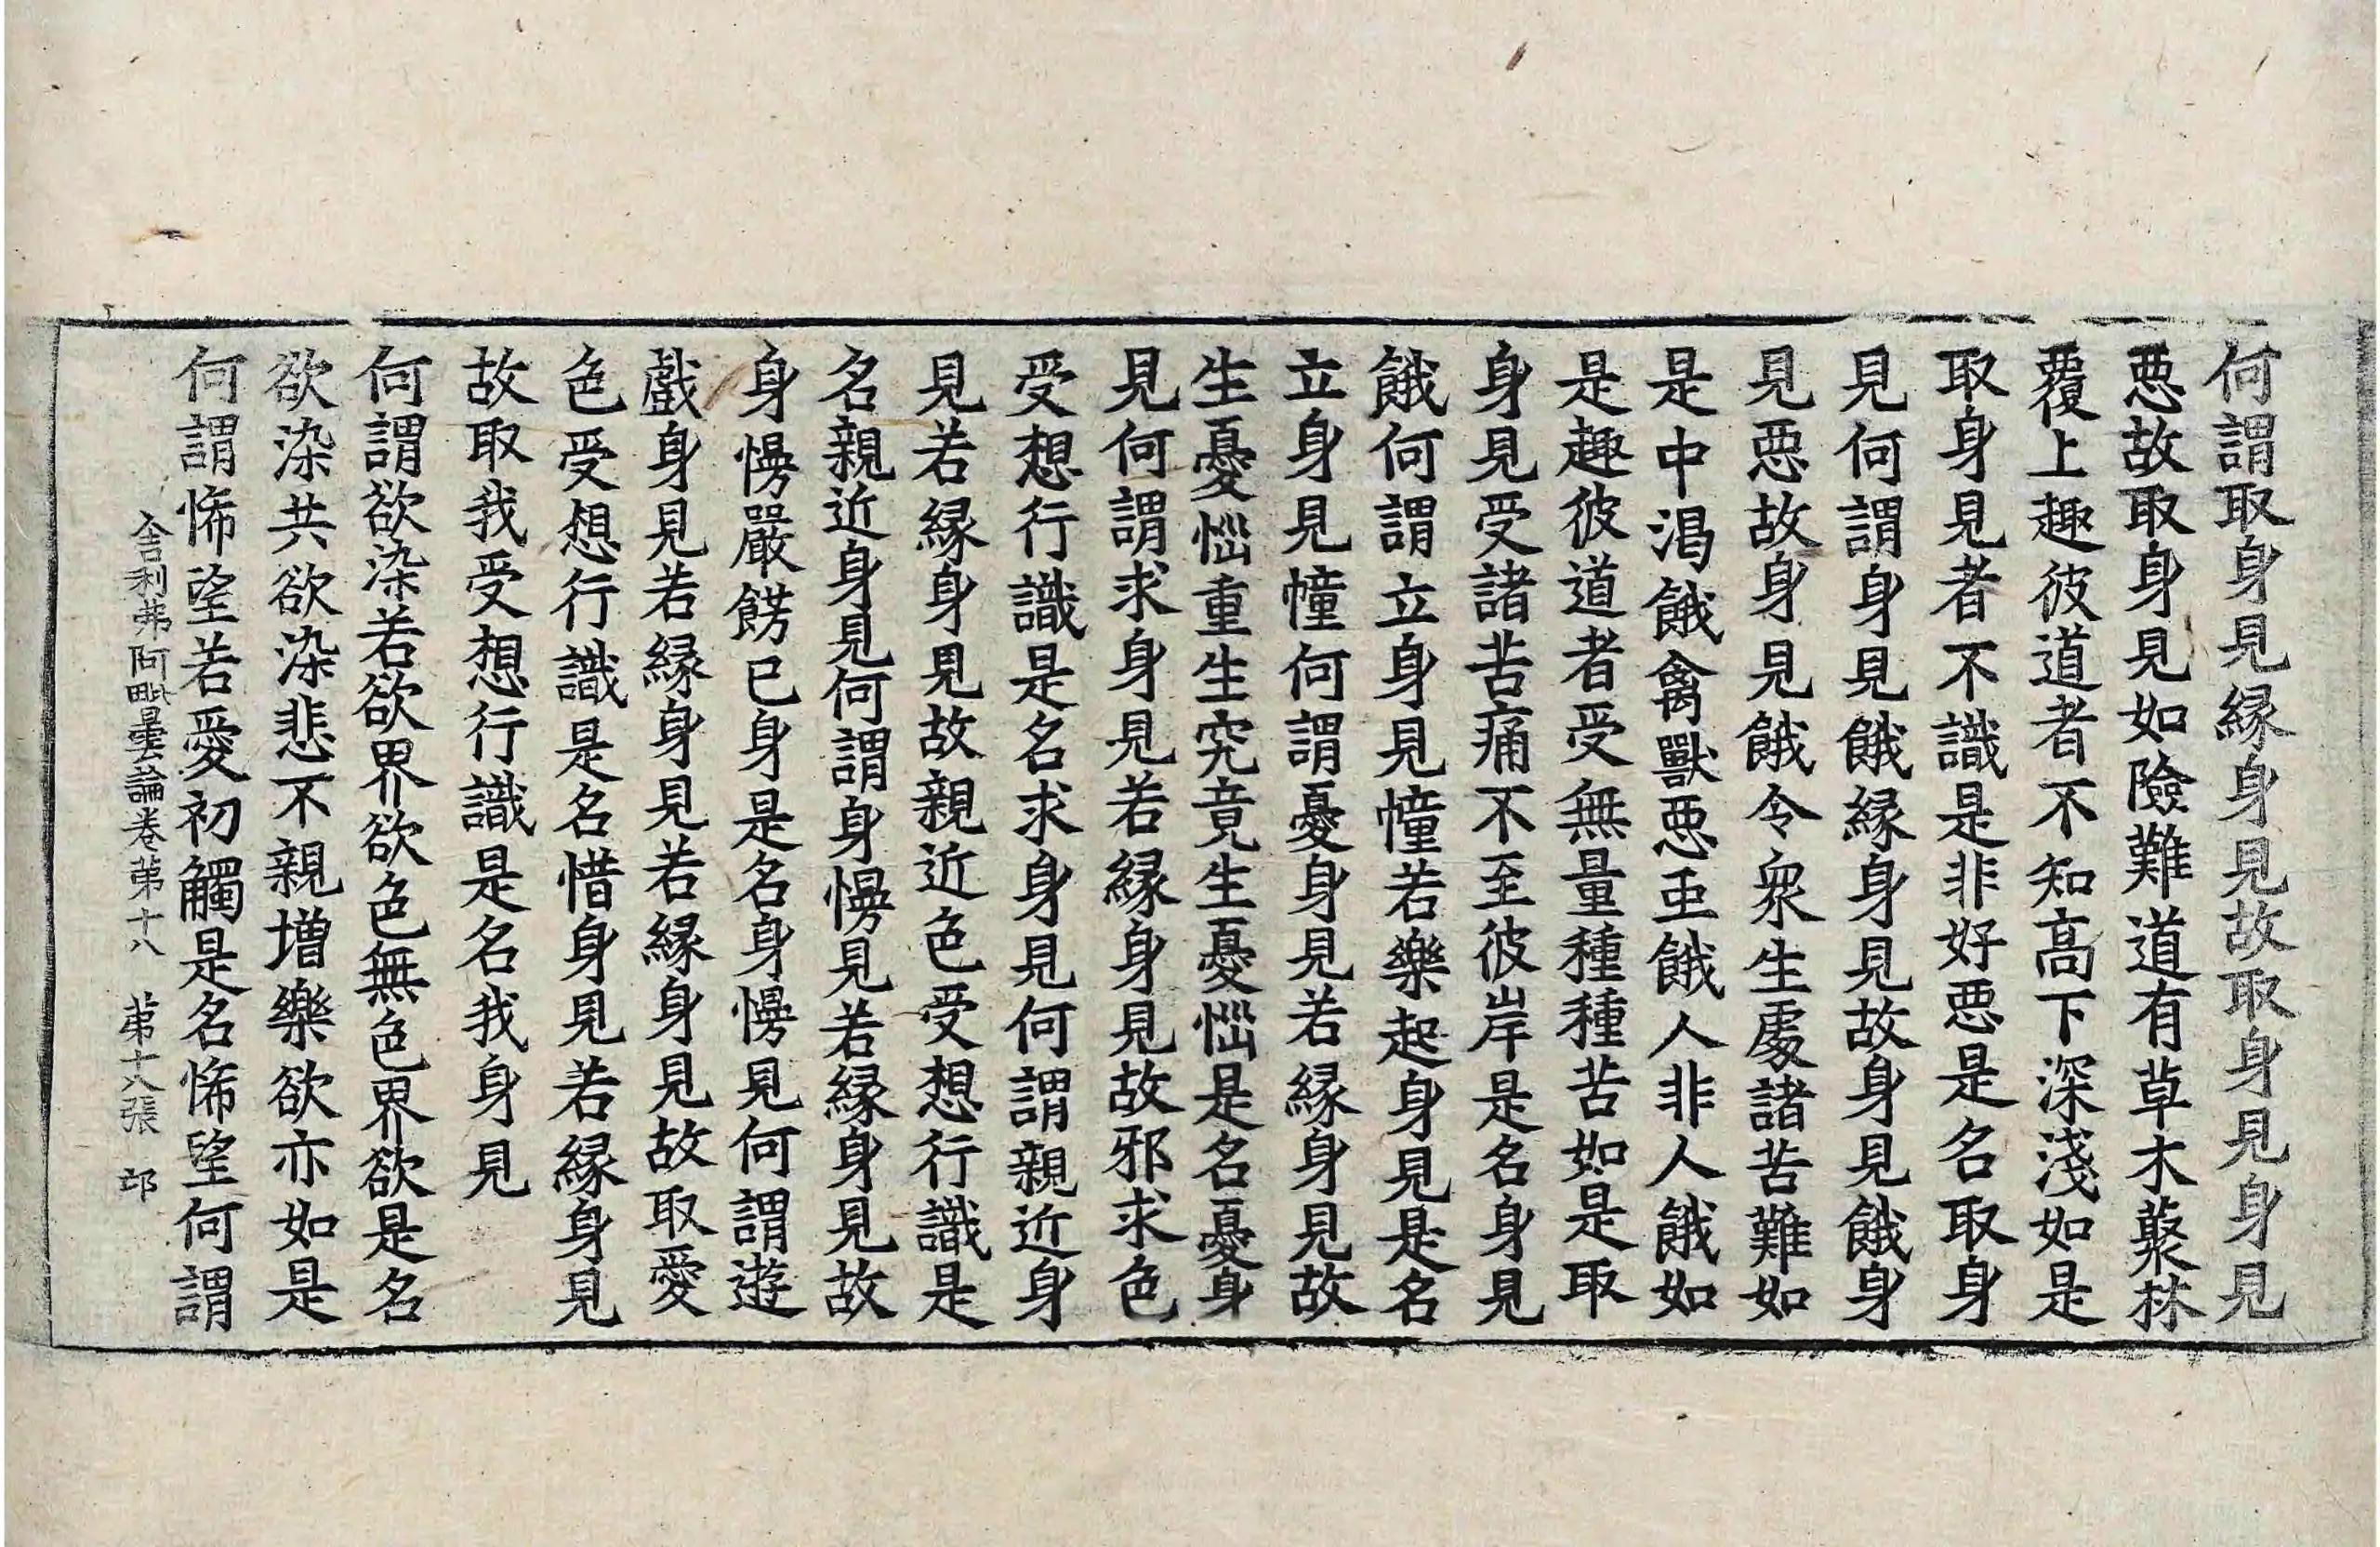 何謂取身見縁身見故取身見身見
惡故取身見如險難道有草木藂林
覆上趣彼道者不知高下深淺如是
取身見者不識是非好惡是名取身
見何謂身見餓縁身見故身見餓身
見惡故身見餓令衆生處諸苦難如
是中渇餓禽獸惡虫餓人非人餓如
是趣彼道者受無量種種苦如是取
身見受諸苦痛不至彼岸是名身見
餓何謂立身見幢若樂起身見是名
立身見幢何謂憂身見若縁身見故
生憂惱重生究竟生憂惱是名憂身
見何謂求身見若縁身見故邪求色
受想行識是名求身見何謂親近身
見若縁身見故親近色受想行識是
名親近身見何謂身慢見若縁身見故
身慢嚴餝已身是名身慢見何謂遊
戲身見若縁身見若縁身見故取愛
色受想行識是名惜身見若縁身見
故取我受想行識是名我身見
何謂欲染若欲界欲色無色界欲是名
欲染共欲染悲不親増樂欲亦如是
何謂悕望若愛初觸是名悕望何謂
舎利弗阿毗曇論卷苐十八　苐十八張　卬